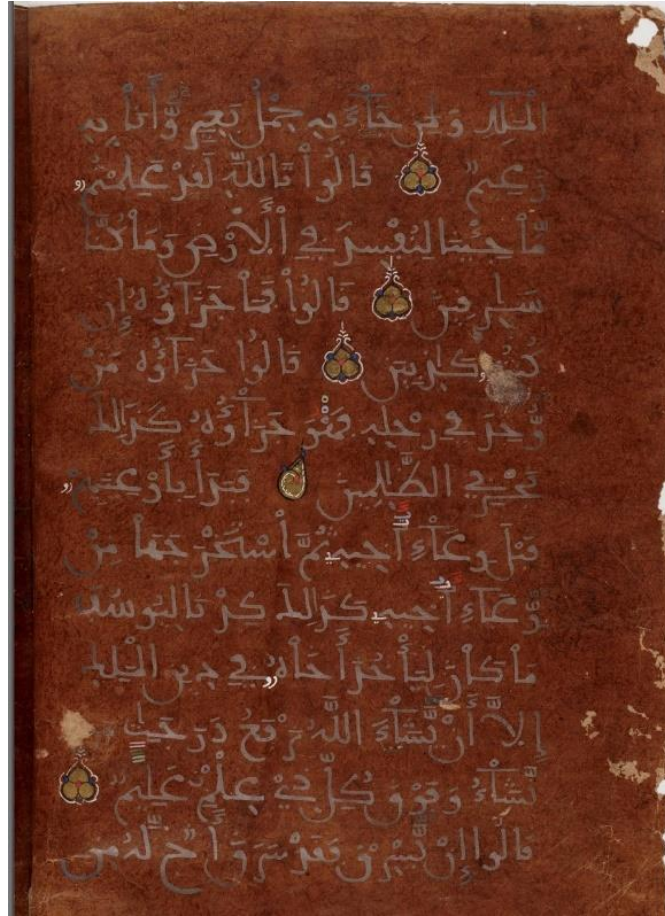 الْمَلِكِ وَلِمَن جَآءَ بِهِۦ حِمْلُ بَعِيرٍ وَأَنَا۠ بِهِۦ
زَعِيمٌ قَالُوا۟ تَاللَّهِ لَقَدْ عَلِمْتُم
مَّا جِئْنَا لِنُفْسِدَ فِي الْأَرْضِ وَمَا كُنَّا
سَٰرِقِينَ قَالُوا۟ فَمَا جَزَٰٓؤُهُۥٓ إِن
كُنتُمْ كَٰذِبِينَ قَالُوا۟ جَزَٰٓؤُهُۥ مَن
وُجِدَ فِي رَحْلِهِۦ فَهُوَ جَزَٰٓؤُهُۥ كَذَٰلِكَ
نَجْزِي الظَّٰلِمِينَ فَبَدَأَ بِأَوْعِيَتِهِمْ
قَبْلَ وِعَآءِ أَخِيهِ ثُمَّ اسْتَخْرَجَهَا مِن
وِعَآءِ أَخِيهِ كَذَٰلِكَ كِدْنَا لِيُوسُفَ
مَا كَانَ لِيَأْخُذَ أَخَاهُ فِي دِينِ الْمَلِكِ
إِلَّآ أَن يَشَآءَ اللَّهُ نَرْفَعُ دَرَجَٰتِ مَن
نَّشَآءُ وَفَوْقَ كُلِّ ذِي عِلْمٍ عَلِيمٌ
قَالُوٓا۟ إِن يَسْرِقْ فَقَدْ سَرَقَ أَخٌ لَّهُۥ مِن